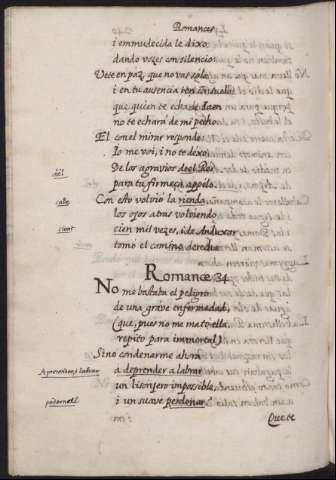 Romances
i emmudecida le dixo,
dando vozes con silencio:
Vete en paz, que no vas solo
i en tu ausencia ten consuelo
que quien te echa de Jaen
no te echará de mi pecho.
El con el mirar responde:
Io me voi, i no te dexo:
De los agravios del Rei
para tu firmeza appelo.
Con esto volvió la rienda
los ojos atras volviendo
cien mil vezes, i de Andujar
tomó el camino derecho.
del
cabo
cient
Romance 34
No me bastaba el peligro
de una grave enfermedad,
(que, pues no me mató ella
repito para immortal)
Sino condenarme ahora
a deprender a labrar
un lisonjero impossible,
i un suave pedernal.
labrar
pedernal
Que se